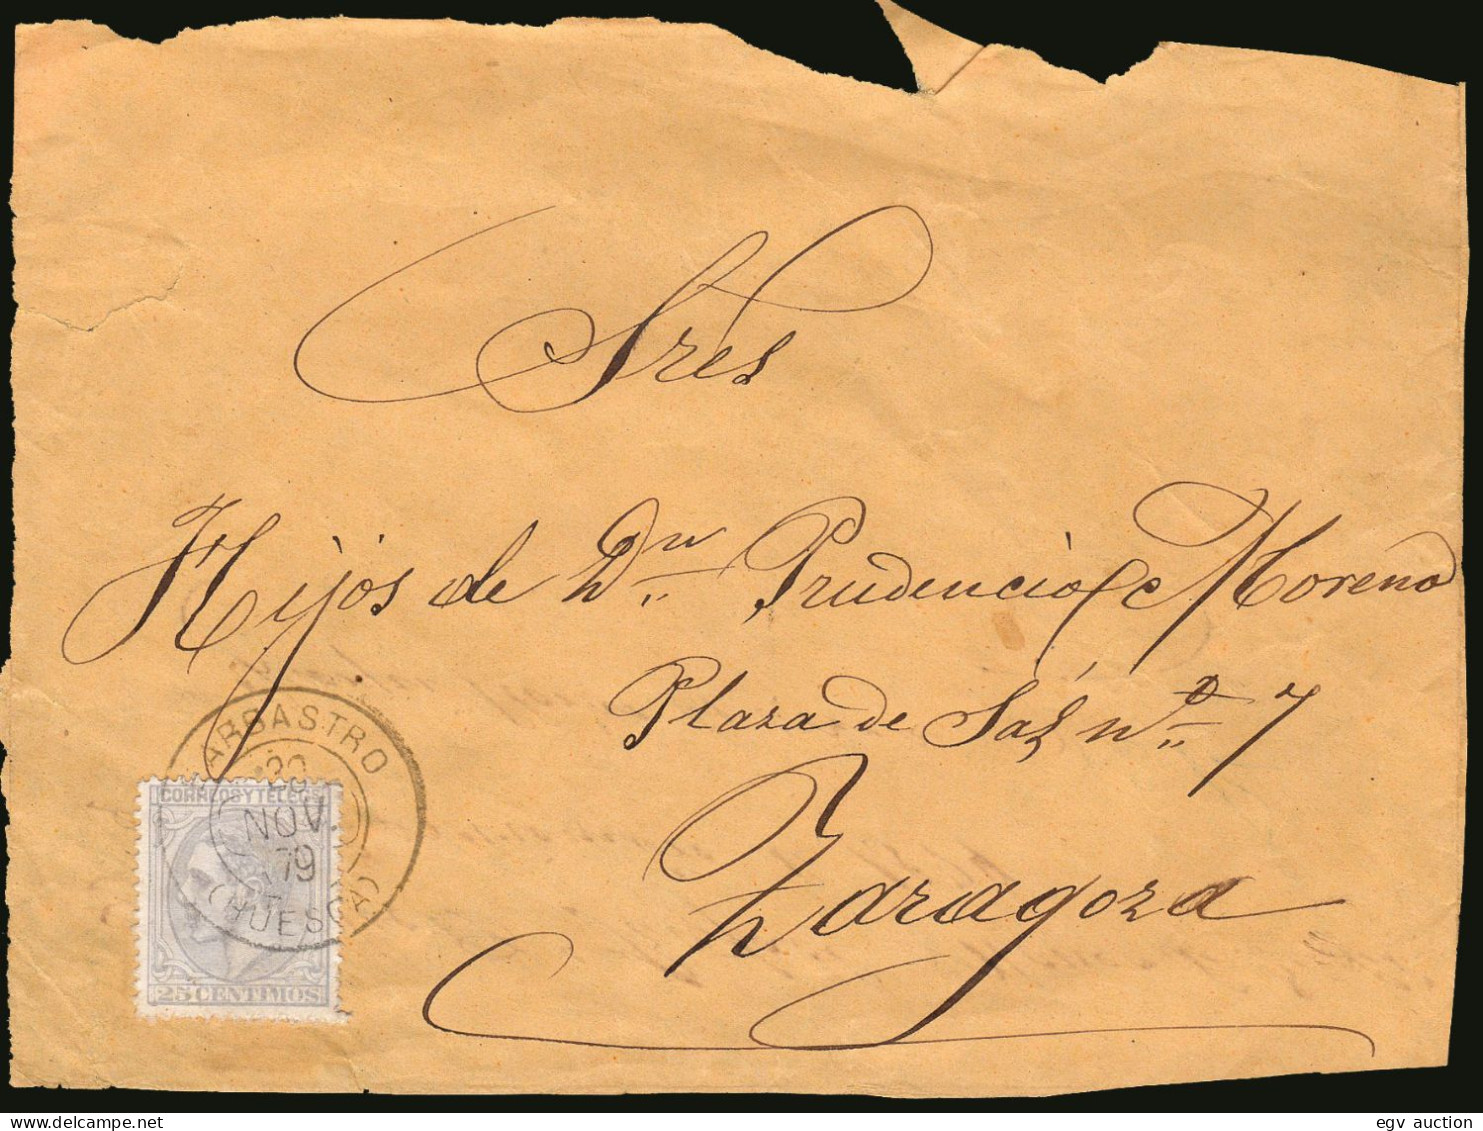 Sres
Hijos de Dn Prudencio Moreno
Plaza de Sas nº 7
Zaragoza
BARBASTRO
20
NOV.
79
(HUESCA)
CORREOS Y TELEGS
25 CENTIMOS
www.delcampe.net
egv auction